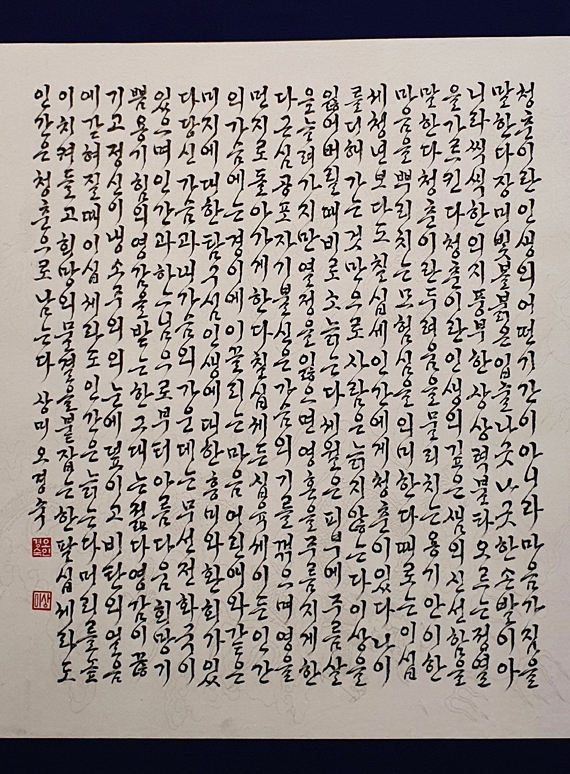 청춘이란인생의어떤기간이아니라마음가짐을
말한다장미빛볼붉은입술나긋나긋한손발이아
니라씩씩한의지풍부한상상력불타오르는정열
을가르킨다청춘이란인생의깊은샘의신선함을
말한다청춘이란두려움을물리치는용기안이한
마음을뿌리치는모험심을의미한다때로는이십
세청년보다도칠십세인간에게청춘이있다나이
를더해가는것만으로사람은늙지않는다이상을
잃어버릴때비로소늙는다세월은피부에주름살
을늘려가지만열정을잃으면영혼을주름지게한
다근심공포자기불신은가슴의기를꺾으며영을
먼지로돌아가게한다칠십세든십육세이든인간
의가슴에는경이에이끌리는마음어린애와같은
미지에대한탐구심인생에대한흥미와환희가있
다당신가슴과내가슴의가운데는무선전화국이
있으며인간과하느님으로부터아름다움희망기
쁨용기힘의영감을받는한그대는젊다영감이끊
기고정신이냉소주의의눈에덮이고비탄의얼음
에갇혀질때이십세라도인간은늙는다머리를높
이치켜들고희망의물결을붙잡는한팔십세라도
인간은청춘으로남는다 상미오경숙